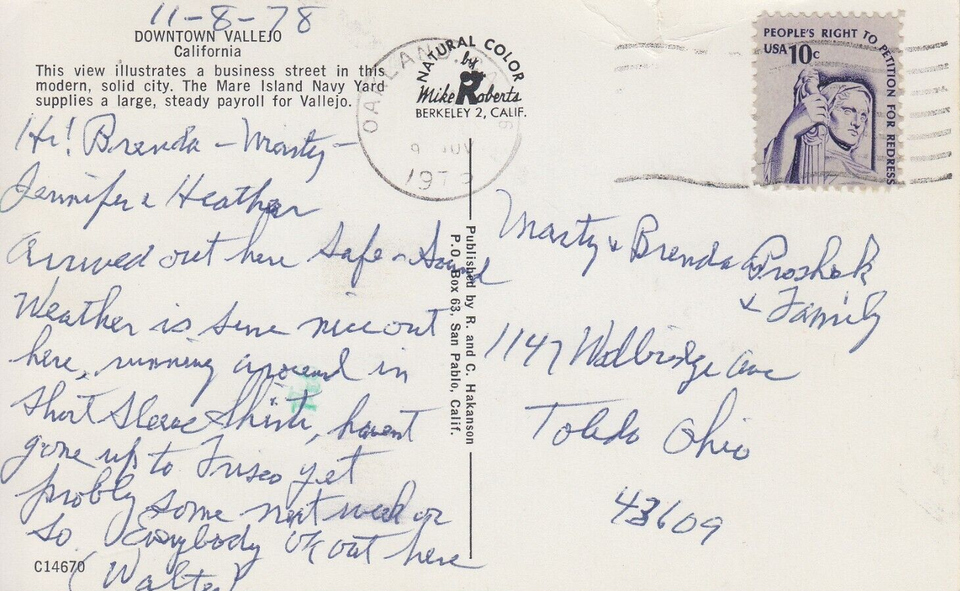 11-8-78
DOWNTOWN VALLEJO
California
This view illustrates a business street in this
modern, solid city. The Mare Island Navy Yard
supplies a large, steady payroll for Vallejo.
Hi! Brenda - Marty -
Jennifer & Heather
arrived out here safe & sound
Weather is sure nice out
here, running around in
short sleeve shirts, havent
gone up to Frisco yet
probly some next week or
so. Everybody OK out here
(Walter)
C14670
NATURAL COLOR
by
Mike Roberts
BERKELEY 2, CALIF.
OAKLAND
9 NOV
197
Published by R. and C. Hakanson
P.O. Box 63, San Pablo, Calif.
PEOPLE'S RIGHT TO PETITION FOR REDRESS
USA 10c
Marty & Brenda Proshek
& Family
1147 Walbridge Ave
Toledo Ohio
43609